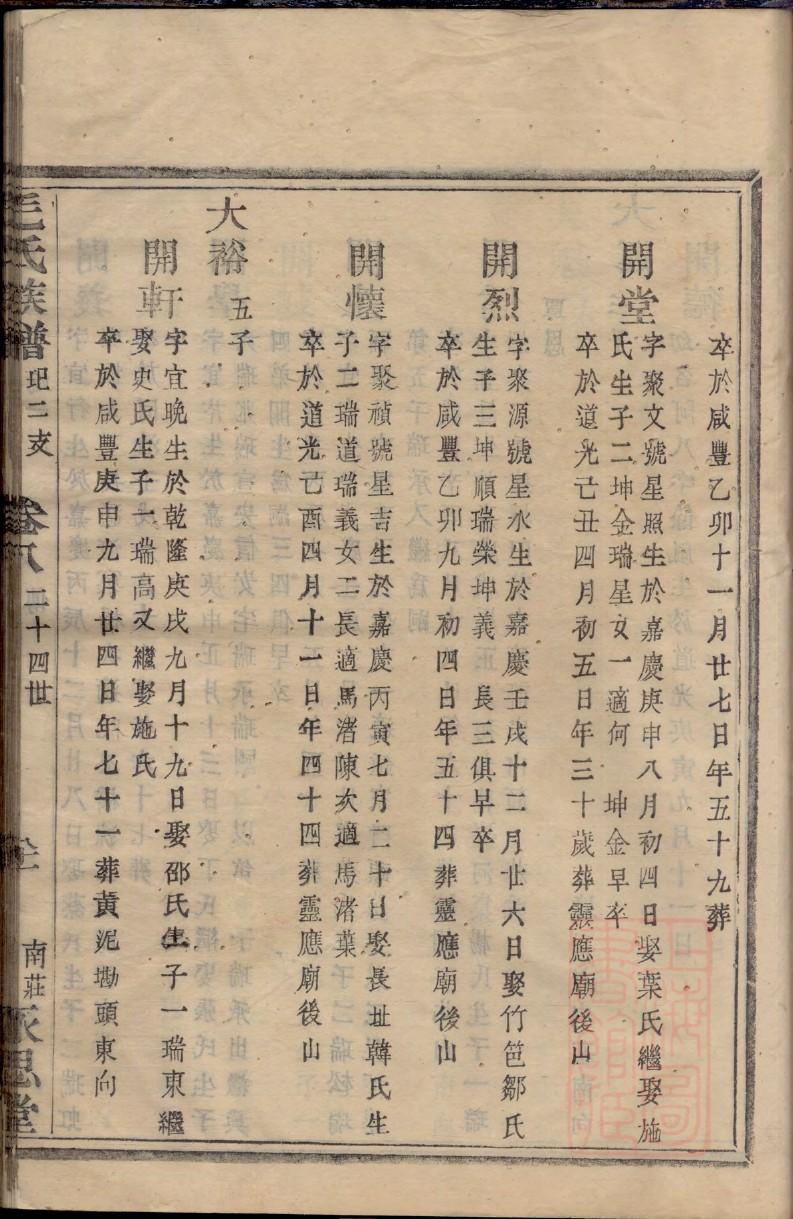 卒於咸豐乙卯十一月廿七日年五十九葬
開堂
字聚文號星照生於嘉慶庚申八月初四日娶葉氏繼娶施
氏生子二坤金瑞星女一適何　坤金早卒
卒於道光己丑四月初五日年三十歲葬靈應廟後山
開烈
字聚源號星水生於嘉慶壬戌十二月廿六日娶竹笆鄒氏
生子三坤順瑞榮坤義　長三俱早卒
卒於咸豐乙卯九月初四日年五十四葬靈應廟後山
開懷
字聚禎號星吉生於嘉慶丙寅七月二十日娶長址韓氏生
子二瑞道瑞義女二長適馬渚陳次適馬渚葉
卒於道光己酉四月十一日年四十四葬靈應廟後山
大裕　五子
開軒
字宜晚生於乾隆庚戌九月十九日娶邵氏生子一瑞東繼
娶史氏生子一瑞高又繼娶施氏
卒於咸豐庚申九月廿四日年七十一葬黃泥墈頭東向
毛氏族譜　玘二支　卷八　二十四世　南莊永思堂